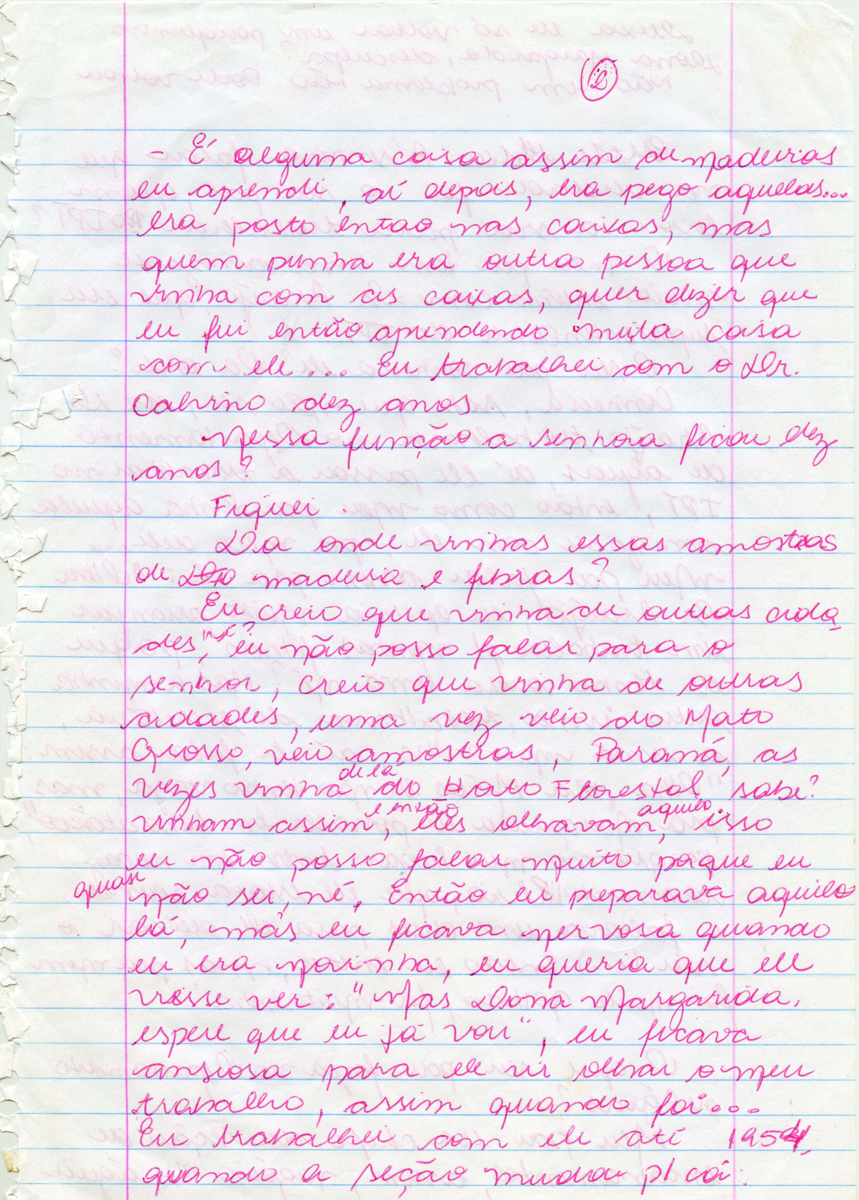 2
- É alguma coisa assim de madeiras
eu aprendi, aí depois, era pego aquelas...
era posto então nas caixas, mas
quem punha era outra pessoa que
vinha com as caixas, quer dizer que
eu fui então aprendendo muita coisa
com ele... Eu trabalhei com o Dr.
Calvino dez anos.
Nessa função a senhora ficou dez
anos?
Fiquei.
Da onde vinhas essas amostras
de madeira e fibras?
Eu creio que vinha de outras cida-
des, né? eu não posso falar para o
senhor, creio que vinha de outras
cidades, uma vez veio do Mato
Grosso, veio amostras, Paraná, as
vezes vinha de lá do Horto Florestal, sabe?
vinham assim, então eles olhavam aquilo, isso
eu não posso falar muito porque eu
quase não sei, né, Então eu preparava aquilo
lá, mas eu ficava nervosa quando
eu era novinha, eu queria que ele
viesse ver: "Mas Dona Margarida,
espere que eu já vou", eu ficava
ansiosa para ele vir olhar o meu
trabalho, assim quando foi...
Eu trabalhei com ele até 1954,
quando a seção mudou p/ cá.